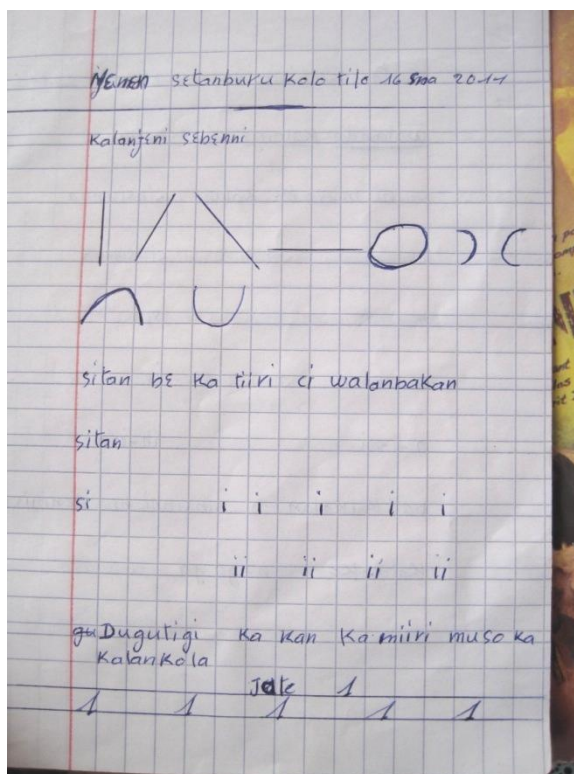 Njɛnɛn setanburu kalo tile 16 sna 2011
Kalanjɛni sɛbɛnni
sitan bɛ ka tiiri ci walanbakan
sitan
si i i i i i
ii ii ii ii
Dugutigi ka kan ka miiri muso ka
Kalankola
Jate 1
1 1 1 1 1